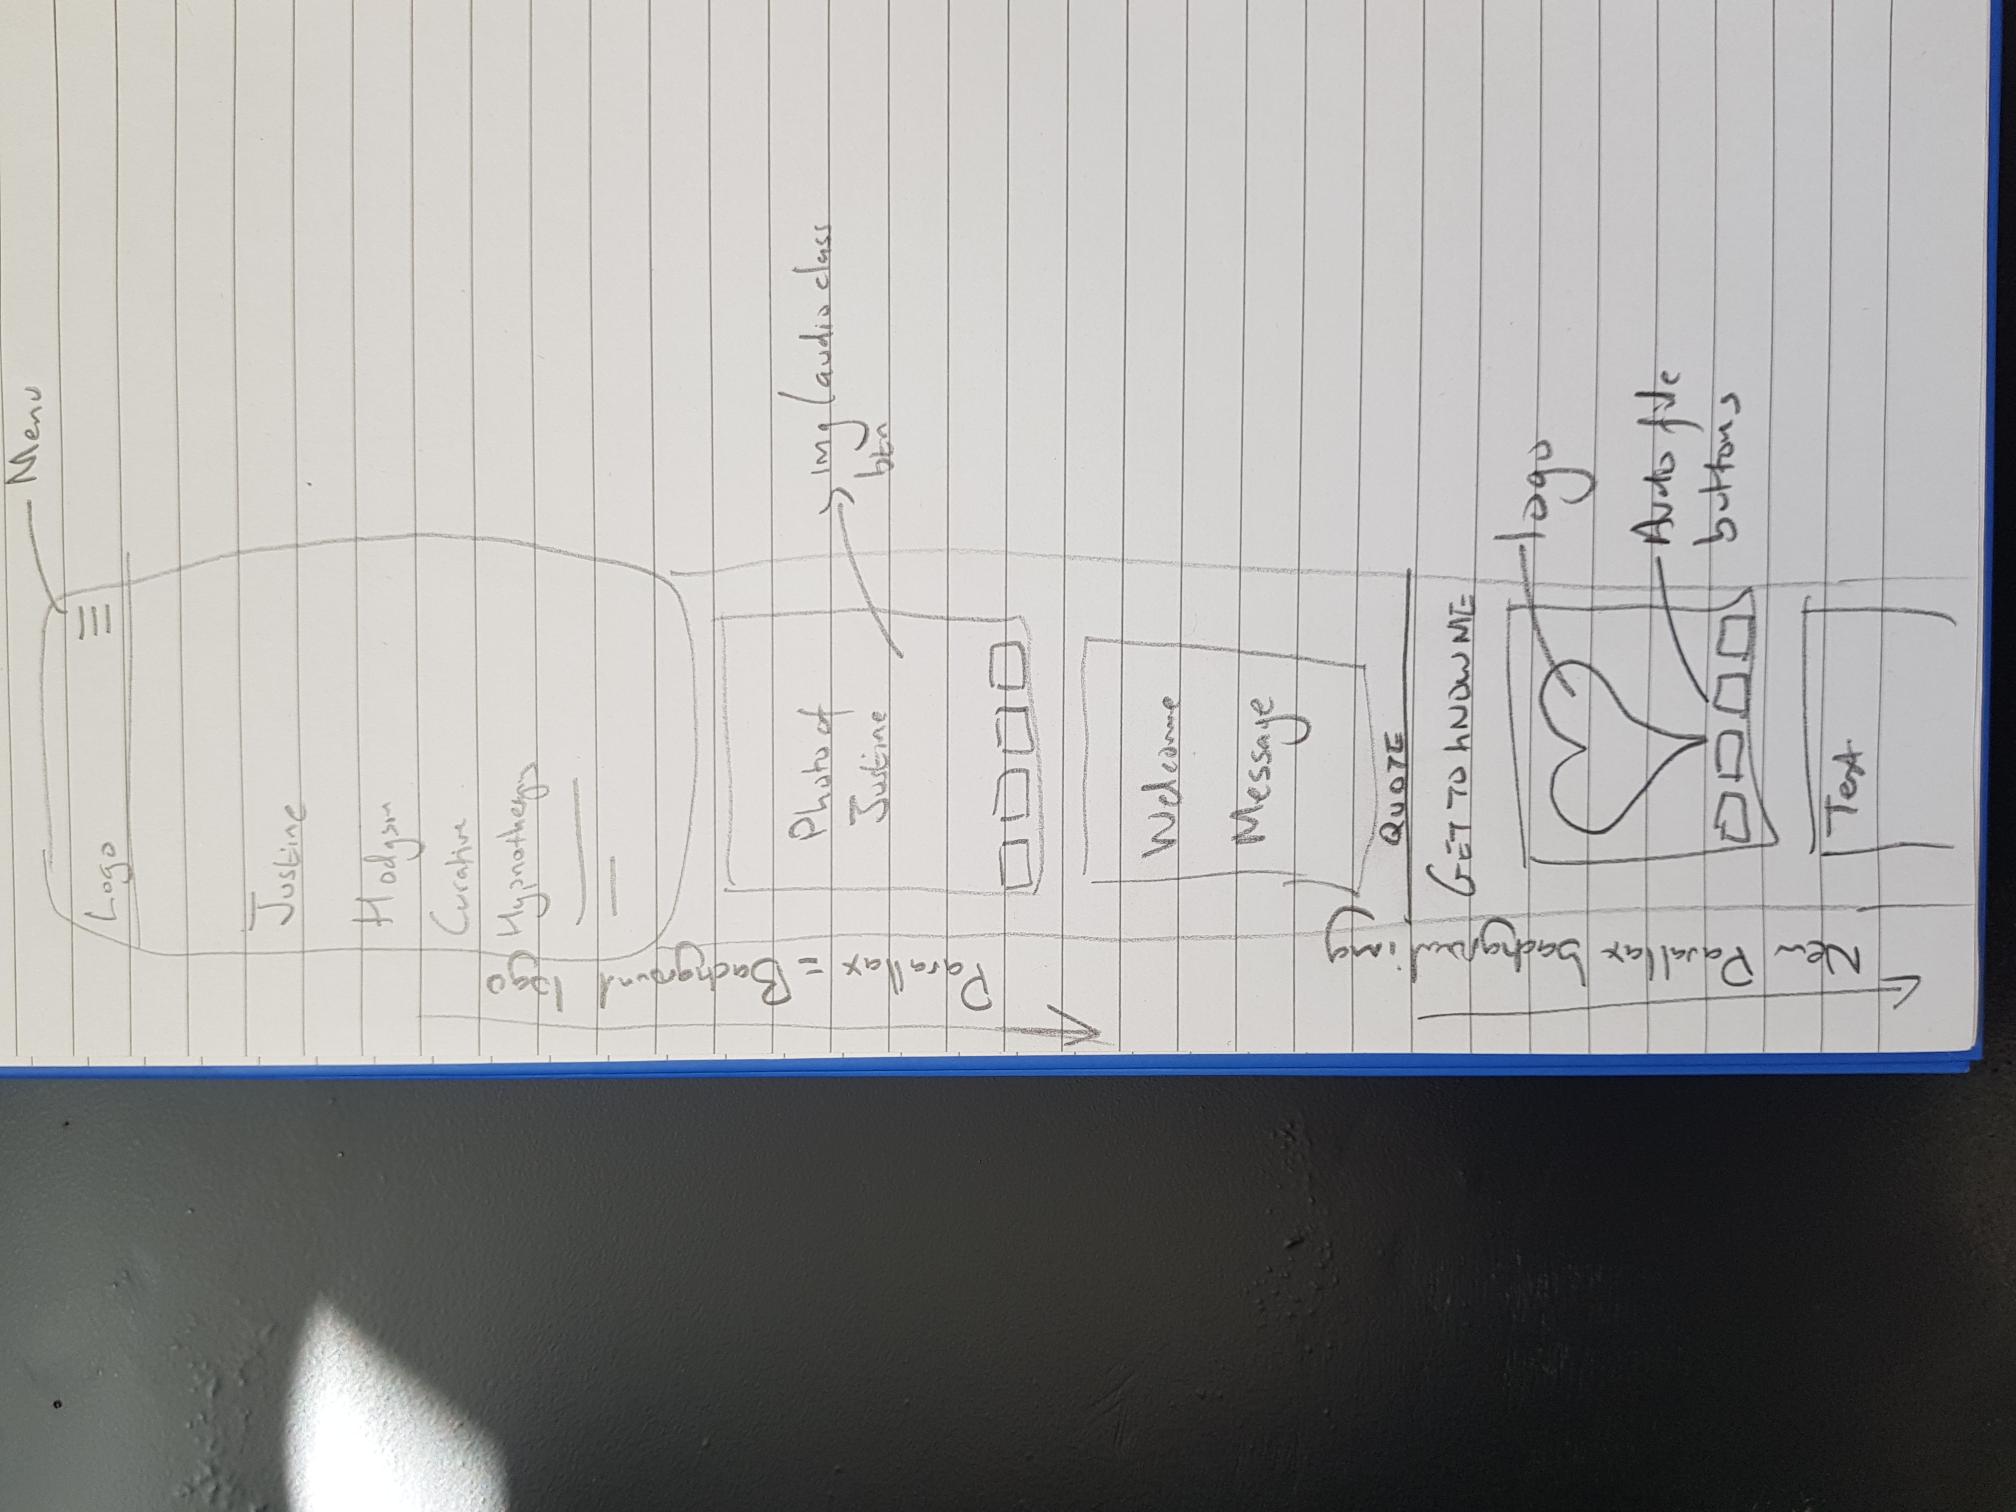 Menu
Logo
Justine
Hodgson
Curative
Hypnotherapy
Parallax = Background logo
Photo of
Justine
img (audio class
btn
Welcome
Message
QUOTE
New Parallax background img
GET TO KNOW ME
logo
Audio file
buttons
Text